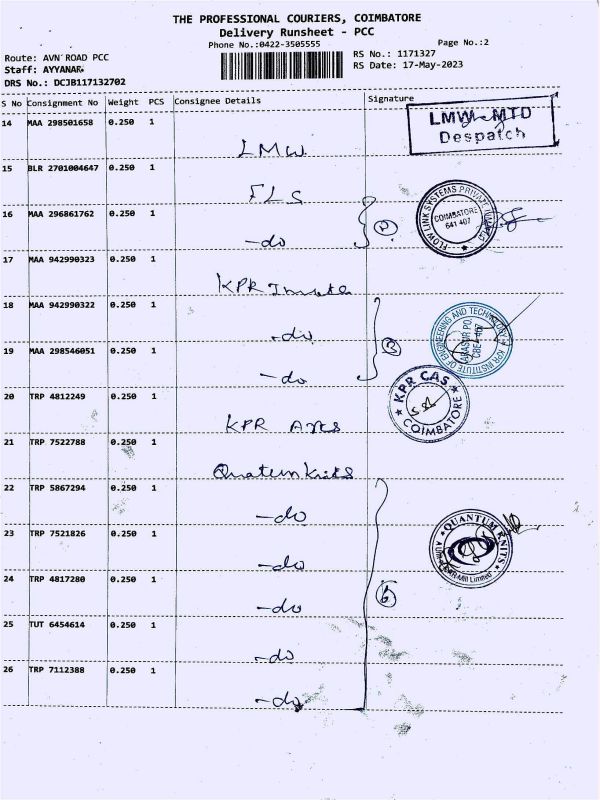 THE PROFESSIONAL COURIERS, COIMBATORE
Delivery Runsheet - PCC
Phone No.:0422-3505555
Page No.:2
Route: AVN ROAD PCC
RS No.: 1171327
Staff: AYYANAR
RS Date: 17-May-2023
DRS No.: DCJB117132702
S No Consignment No Weight PCS Consignee Details Signature
14 MAA 298501658 0.250 1
LMW
LMW-MTD
Despatch
15 BLR 2701004647 0.250 1
FLS
16 MAA 296861762 0.250 1
-do
2
FLOW LINK SYSTEMS PRIVATE LIMITED
COIMBATORE
641 407
17 MAA 942990323 0.250 1
KPR
18 MAA 942990322 0.250 1
-do
19 MAA 298546051 0.250 1
-do
3
KPR INSTITUTE OF ENGINEERING AND TECHNOLOGY
ARASUR PO.
CBE-407
20 TRP 4812249 0.250 1
KPR Arts
KPR CAS
COIMBATORE
21 TRP 7522788 0.250 1
Quatum Knits
22 TRP 5867294 0.250 1
-do
23 TRP 7521826 0.250 1
-do
QUANTUM KNITS
Mill Limited
24 TRP 4817280 0.250 1
-do
6
25 TUT 6454614 0.250 1
-do
26 TRP 7112388 0.250 1
-do